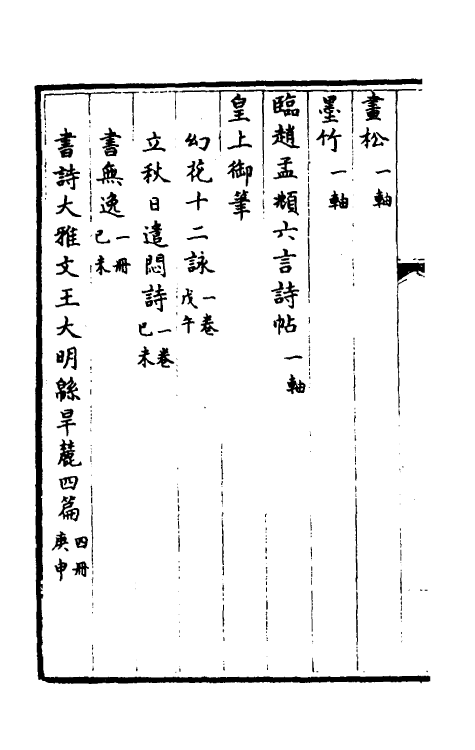 畫松一軸
墨竹一軸
臨趙孟頫六言詩帖一軸
皇上御筆
幻花十二詠一卷戊午
立秋日遣悶詩一卷己未
書無逸一冊己未
書詩大雅文王大明緜旱麓四篇四冊庚申